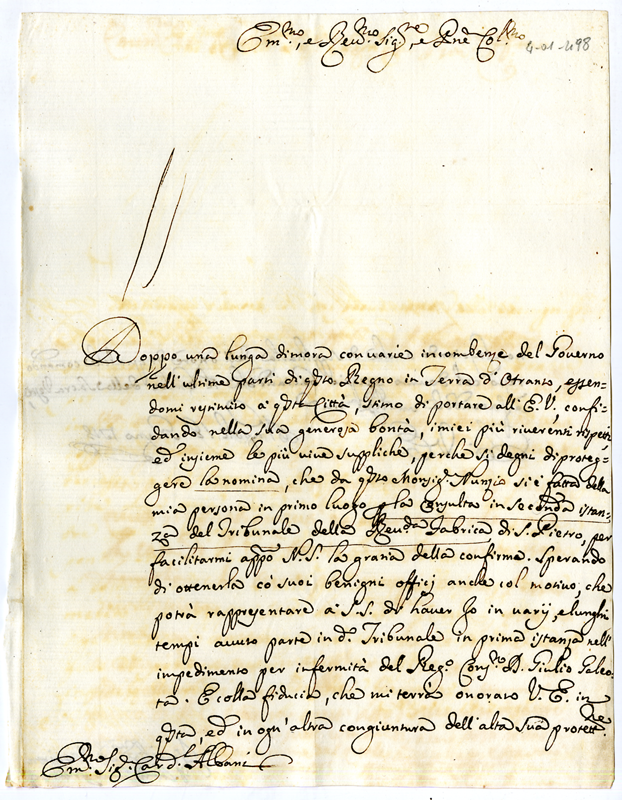 Em.mo, e Rev.mo Sig.re, e Pne Col.mo
4-01-498
Doppo una lunga dimora con varie incombenze del Governo
nell'ultime parti di q̃sto Regno in Terra d'Otranto, essen-
domi restituito à q̃sta Città, stimo di portare all'E.V., confi-
dando nella sua generosa bontà, i miei più riverenti rispetti,
ed insieme le più vive suppliche, perche si degni di proteg-
gere la nomina, che da q̃sto Monsig.r Nunzio si è fatta della
mia persona in primo luogo p la Consulta in seconda istan-
za del Tribunale della Reu.da Fabrica di S. Pietro, per
facilitarmi app̃o N.S. la grazia della confirma. Sperando
di ottenerla cò suoi benigni officij anche col motivo, che
potrà rappresentare à S.S. di haver Io in varij, e lunghi
tempi avuto parte in d.o Tribunale in prima istanza nell'
impedimento per infermità del Reg.o Cons.ro D. Giulio Galeo-
ta. E colla fiducia, che mi terrà onorato V.E. in
q̃sta, ed in ogn'altra congiuntura dell'alta sua protett.ne
Em.mo Sig.r Card.l Albani